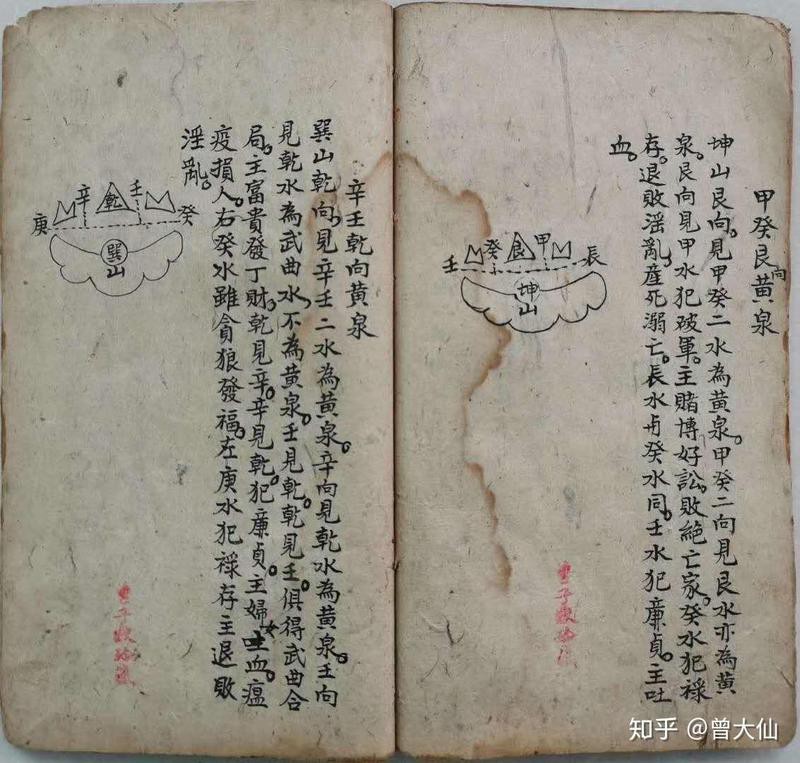 甲癸艮向黃泉
坤山艮向。見甲癸二水為黃泉。甲癸二向見艮水亦為黃
泉。艮向見甲水犯破軍。主賭博好訟。敗絕亡家。癸水犯祿
存。退敗淫亂。產死溺亡。長水与癸水同。壬水犯廉貞。主吐
血。
壬 癸 艮 甲 長
坤山
辛壬乾向黃泉
巽山乾向。見辛壬二水為黃泉。辛向見乾水為黃泉。壬向
見乾水為武曲水。不為黃泉。壬見乾。乾見壬。俱得武曲合
局。主富貴發丁財。乾見辛。辛見乾犯廉貞。主婦女吐血。瘟
疫損人。右癸水雖貪狼發福。左庚水犯祿存主退敗
淫亂。
庚 辛 乾 壬 癸
巽山
知乎 @曾大仙